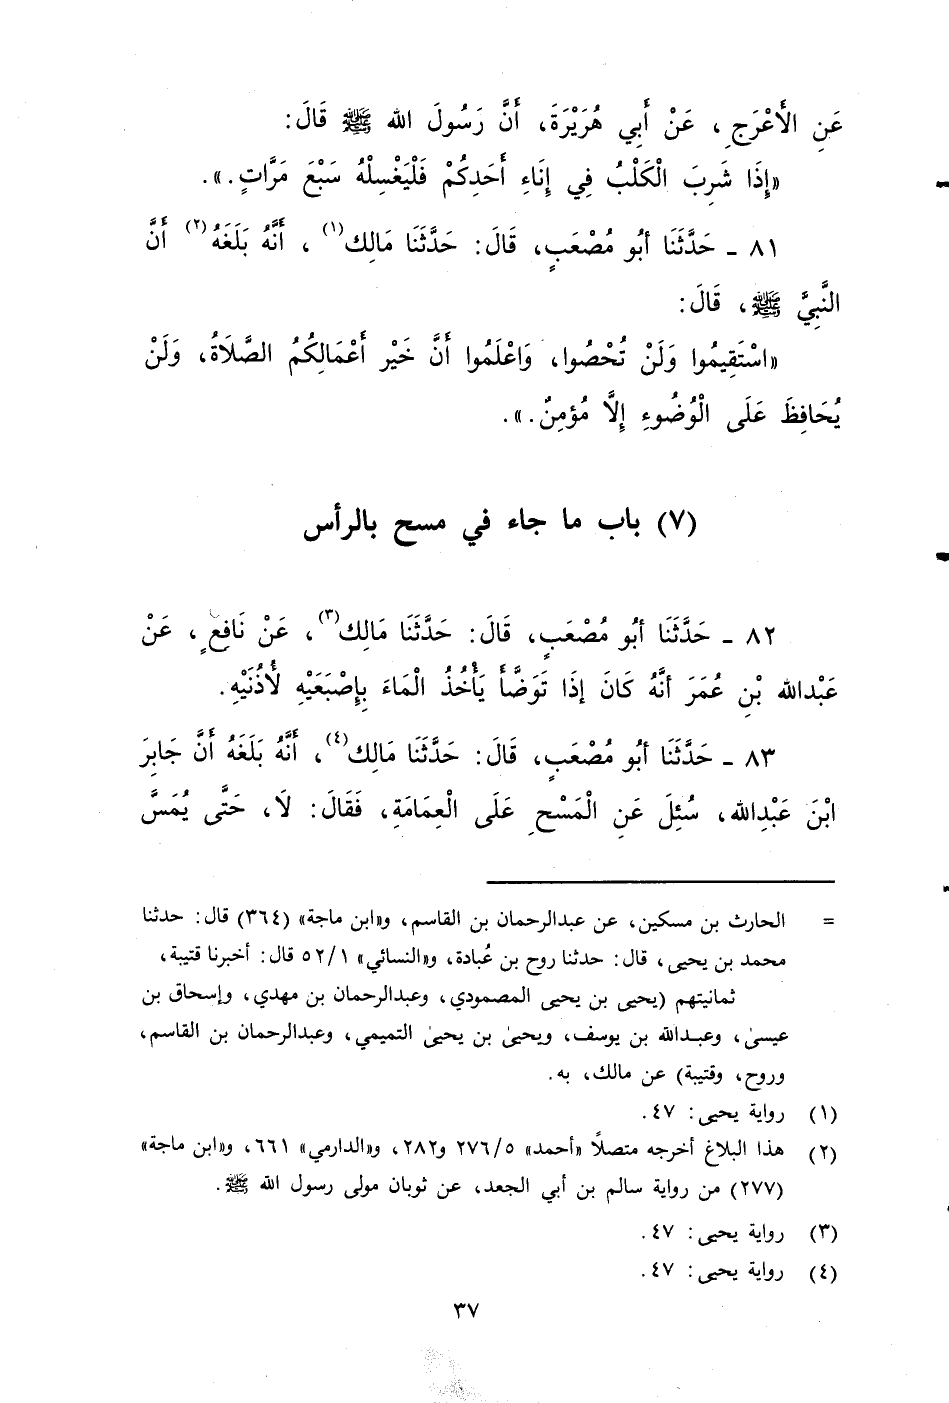 عَنِ الأَعْرَجِ، عَنْ أَبِي هُرَيْرَةَ، أَنَّ رَسُولَ الله ﷺ قَالَ:
«إِذَا شَرِبَ الْكَلْبُ فِي إِنَاءِ أَحَدِكُمْ فَلْيَغْسِلْهُ سَبْعَ مَرَّاتٍ.».
٨١ ـ حَدَّثَنَا أبُو مُصْعَبٍ، قَالَ: حَدَّثَنَا مَالِك(١)، أَنَّهُ بَلَغَهُ(٢) أَنَّ
النَّبِيَّ ﷺ، قَالَ:
«اسْتَقِيمُوا وَلَنْ تُحْصُوا، وَاعْلَمُوا أَنَّ خَيْر أَعْمَالِكُمُ الصَّلَاةُ، وَلَنْ
يُحَافِظَ عَلَى الْوُضُوءِ إِلَّا مُؤمِنٌ.».
(٧) باب ما جاء في مسح بالرأس
٨٢ ـ حَدَّثَنَا أبُو مُصْعَبٍ، قَالَ: حَدَّثَنَا مَالِك(٣)، عَنْ نَافِعٍ، عَنْ
عَبْدالله بْنِ عُمَرَ أنَّهُ كَانَ إذَا تَوَضَّأَ يَأْخُذُ الْمَاءَ بِإِصْبَعَيْهِ لُأذُنَيْهِ.
٨٣ ـ حَدَّثَنَا أبُو مُصْعَبٍ، قَالَ: حَدَّثَنَا مَالِك(٤)، أَنَّهُ بَلَغَهُ أَنَّ جَابِرَ
ابْنَ عَبْدِالله، سُئِلَ عَنِ الْمَسْحِ عَلَى الْعِمَامَةِ، فَقَالَ: لَا، حَتَّى يُمَسَّ
= الحارث بن مسكين، عن عبدالرحمان بن القاسم، و«ابن ماجة» (٣٦٤) قال: حدثنا
محمد بن يحيى، قال: حدثنا روح بن عُبادة، و«النسائي» ٥٢/١ قال: أخبرنا قتيبة،
ثمانيتهم (يحيى بن يحيى المصمودي، وعبدالرحمان بن مهدي، وإسحاق بن
عيسىٰ، وعبدالله بن يوسف، ويحيىٰ بن يحيىٰ التميمي، وعبدالرحمان بن القاسم،
وروح، وقتيبة) عن مالك، به.
(١) رواية يحيى: ٤٧.
(٢) هذا البلاغ أخرجه متصلًا «أحمد» ٢٧٦/٥ و٢٨٢، و«الدارمي» ٦٦١، و«ابن ماجة»
(٢٧٧) من رواية سالم بن أبي الجعد، عن ثوبان مولى رسول الله ﷺ.
(٣) رواية يحيى: ٤٧.
(٤) رواية يحيى: ٤٧.
٣٧